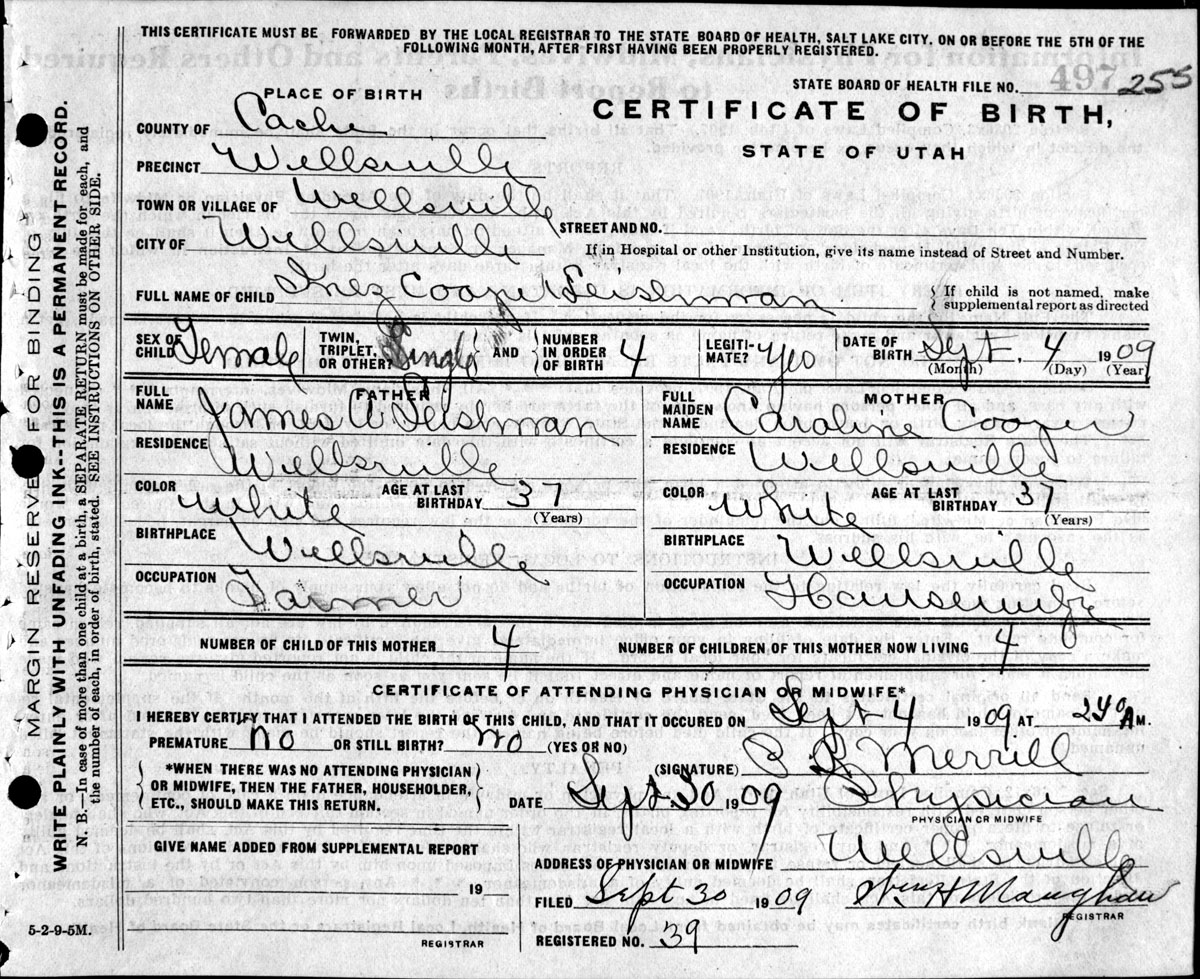 THIS CERTIFICATE MUST BE FORWARDED BY THE LOCAL REGISTRAR TO THE STATE BOARD OF HEALTH, SALT LAKE CITY, ON OR BEFORE THE 5TH OF THE
FOLLOWING MONTH, AFTER FIRST HAVING BEEN PROPERLY REGISTERED.
STATE BOARD OF HEALTH FILE NO. 497 255
PLACE OF BIRTH
CERTIFICATE OF BIRTH,
STATE OF UTAH
COUNTY OF Cache
PRECINCT Wellsville
TOWN OR VILLAGE OF Wellsville
STREET AND NO.
CITY OF Wellsville
If in Hospital or other Institution, give its name instead of Street and Number.
FULL NAME OF CHILD Inez Cooper Leishman
If child is not named, make supplemental report as directed
SEX OF CHILD Female TWIN, TRIPLET, OR OTHER? Single AND NUMBER IN ORDER OF BIRTH 4 LEGITI-MATE? Yes DATE OF BIRTH Sept. 4 1909
(Month) (Day) (Year)
FATHER
FULL NAME James A Leishman
RESIDENCE Wellsville
COLOR White AGE AT LAST BIRTHDAY 37
(Years)
BIRTHPLACE Wellsville
OCCUPATION Farmer
MOTHER
FULL MAIDEN NAME Caroline Cooper
RESIDENCE Wellsville
COLOR White AGE AT LAST BIRTHDAY 37
(Years)
BIRTHPLACE Wellsville
OCCUPATION Housewife
NUMBER OF CHILD OF THIS MOTHER 4 NUMBER OF CHILDREN OF THIS MOTHER NOW LIVING 4
CERTIFICATE OF ATTENDING PHYSICIAN OR MIDWIFE*
I HEREBY CERTIFY THAT I ATTENDED THE BIRTH OF THIS CHILD, AND THAT IT OCCURED ON Sept 4 1909 AT 2 40 A M.
PREMATURE No OR STILL BIRTH? No (YES OR NO)
*WHEN THERE WAS NO ATTENDING PHYSICIAN
OR MIDWIFE, THEN THE FATHER, HOUSEHOLDER,
ETC., SHOULD MAKE THIS RETURN.
(SIGNATURE) Merrill
DATE Sept. 30 1909 Physician
PHYSICIAN OR MIDWIFE
GIVE NAME ADDED FROM SUPPLEMENTAL REPORT
19
REGISTRAR
ADDRESS OF PHYSICIAN OR MIDWIFE Wellsville
FILED Sept 30 1909 H Maughan
REGISTRAR
REGISTERED NO. 39
5-2-9-5M.
MARGIN RESERVED FOR BINDING
WRITE PLAINLY WITH UNFADING INK---THIS IS A PERMANENT RECORD.
N. B.—In case of more than one child at a birth, a SEPARATE RETURN must be made for each, and
the number of each, in order of birth, stated. SEE INSTRUCTIONS ON OTHER SIDE.